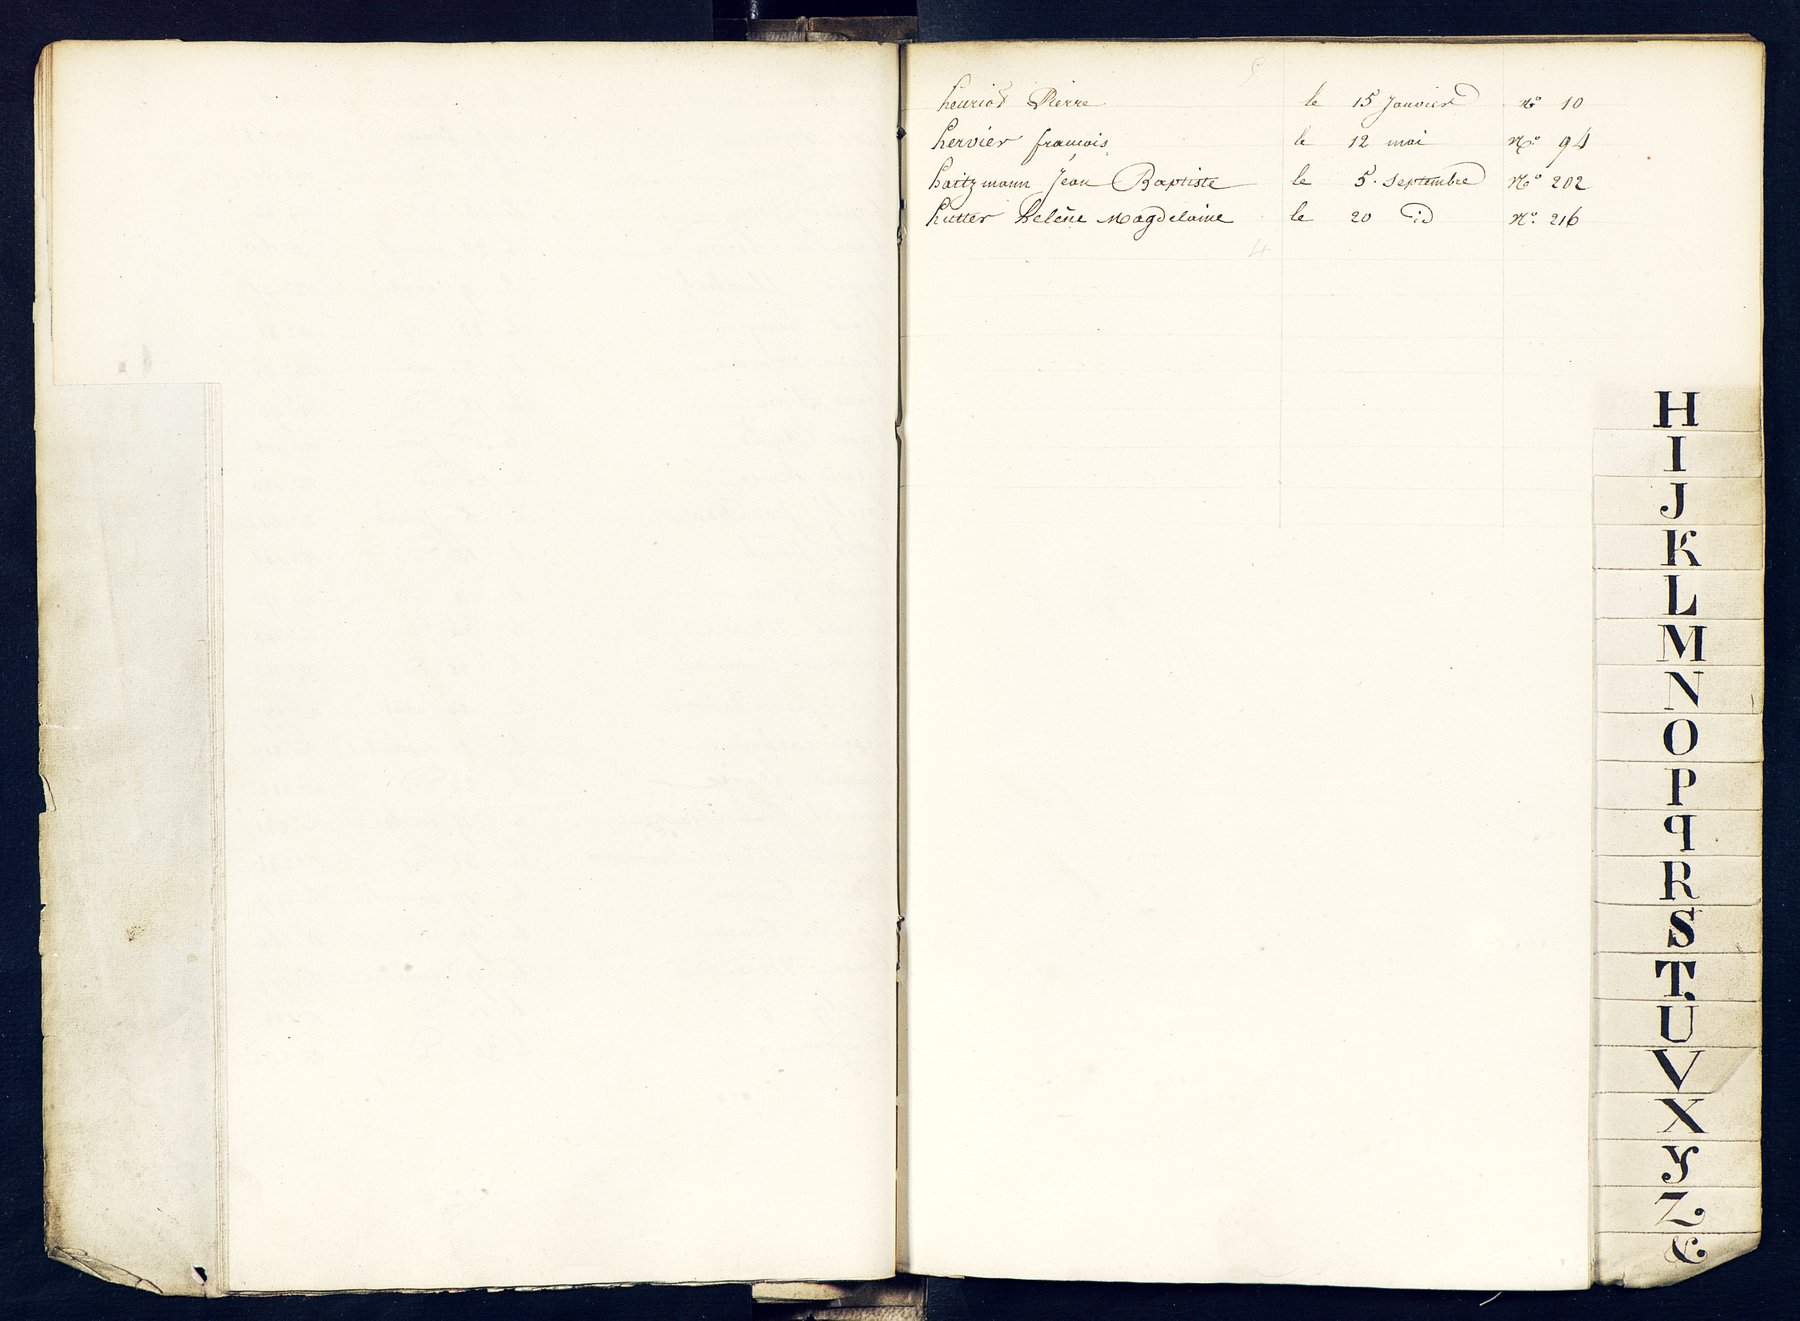 henriot Pierre le 15 Janvier n° 10
hervier francois le 12 mai N° 94
haitzmann Jean Baptiste le 5. Septembre N° 202
hutter helêne Magdelaine le 20 id N° 216
4
H
I
J
K
L
M
N
O
P
q
R
S
T.
U
V
X
Y
Z
&